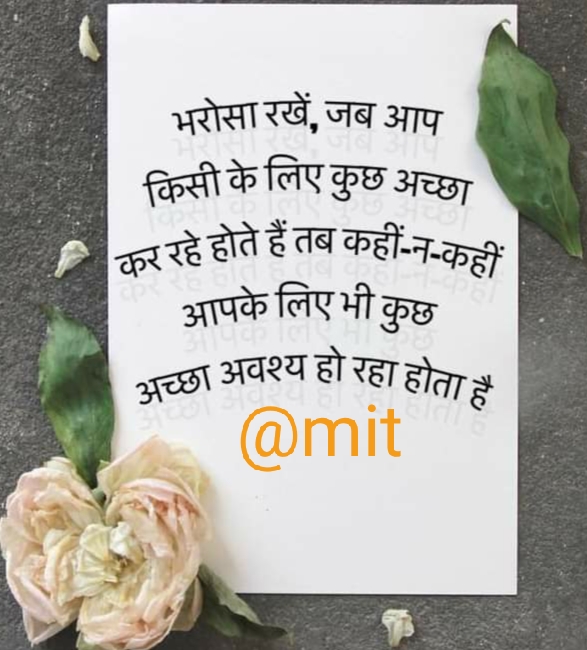 भरोसा रखें, जब आप
किसी के लिए कुछ अच्छा
कर रहे होते हैं तब कहीं-न-कहीं
आपके लिए भी कुछ
अच्छा अवश्य हो रहा होता है
@mit